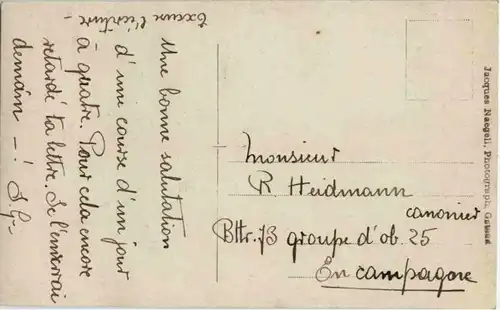 Excuse l'écriture -
Une bonne salutation
d'une course d'un jour
à quatre. Pour cela encore
retardé ta lettre. Je l'enverrai
demain - ! S.G-
Monsieur
R Heidmann
canonier
Bttr. 73 groupe d'ob. 25
En campagne
Jacques Naegeli, Photograph, Gstaad